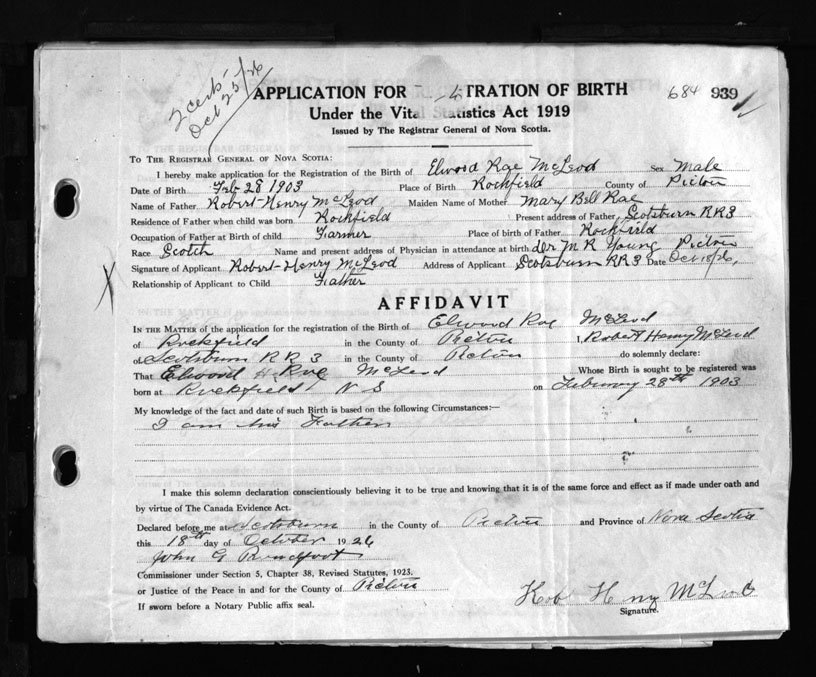 2 certs
Oct 25/26
APPLICATION FOR TRATION OF BIRTH
684 939
Under the Vital Statistics Act 1919
Issued by The Registrar General of Nova Scotia.
TO THE REGISTRAR GENERAL OF NOVA SCOTIA:
I hereby make application for the Registration of the Birth of Elwood Rae McLeod Sex Male
Date of Birth Feb 28 1903 Place of Birth Rockfield County of Pictou
Name of Father Robert Henry McLeod Maiden Name of Mother Mary Bell Rae
Residence of Father when child was born Rockfield Present address of Father Scotsburn RR3
Occupation of Father at Birth of child Farmer Place of birth of Father Rockfield
Race Scotch Name and present address of Physician in attendance at birth dr M R Young Pictou
Signature of Applicant Robert Henry McLeod Address of Applicant Scotsburn RR3 Date Oct 18/26
Relationship of Applicant to Child Father
X
AFFIDAVIT
IN THE MATTER of the application for the registration of the Birth of Elwood Rae McLeod
of Rockfield in the County of Pictou I, Robert Henry McLeod
of Scotsburn RR3 in the County of Pictou do solemnly declare:
That Elwood Rae McLeod Whose Birth is sought to be registered was
born at Rockfield N S on February 28th 1903
My knowledge of the fact and date of such Birth is based on the following Circumstances:—
I am his Father
I make this solemn declaration conscientiously believing it to be true and knowing that it is of the same force and effect as if made under oath and
by virtue of The Canada Evidence Act.
Declared before me at Scotsburn in the County of Pictou and Province of Nova Scotia
this 18th day of October 1926
John G
Commissioner under Section 5, Chapter 38, Revised Statutes, 1923.
or Justice of the Peace in and for the County of Pictou
If sworn before a Notary Public affix seal.
Rob Henry McLeod
Signature.